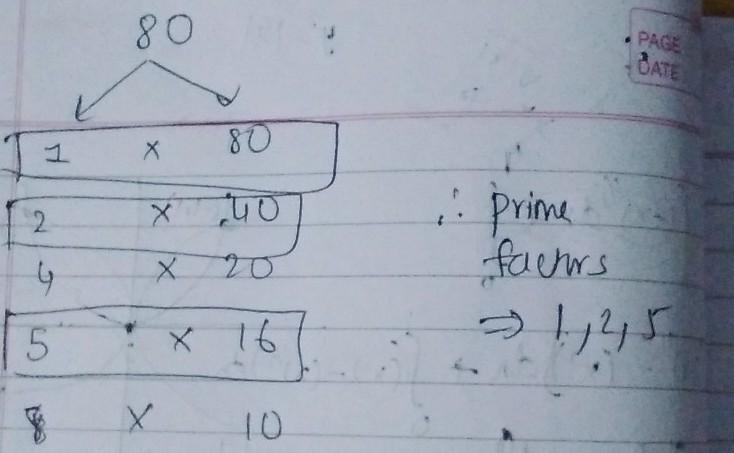 80
PAGE
DATE
1 × 80
2 × 40
4 × 20
5 × 16
8 × 10
∴ prime
factors
⇒ 1, 2, 5